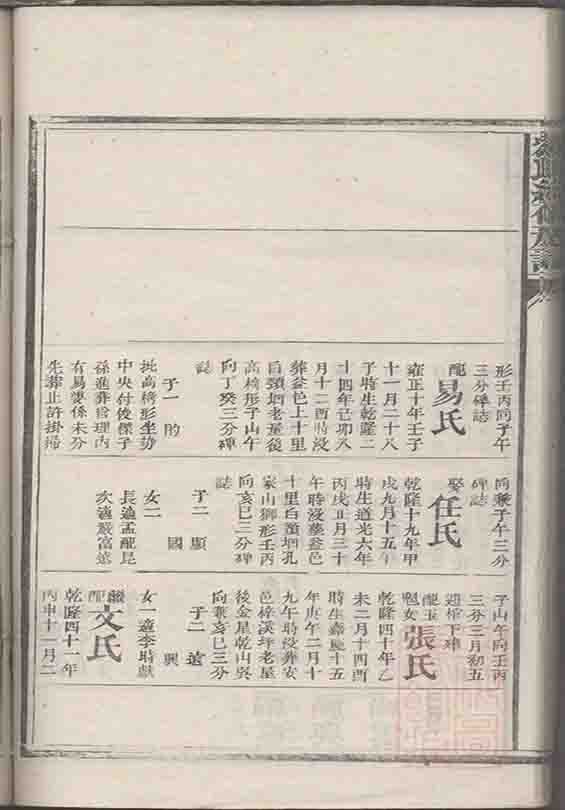 形壬丙向子午
三分碑誌
配易氏
雍正十年壬子
十一月二十八
子時生乾隆二
十四年己卯八
月十二酉時歿
葬益邑上十里
白頸垇老屋後
高椅形子山午
向丁癸三分碑
誌
子一 昀
批高椅形坐勢
中央付俊傑子
孫進葬管理內
有易嬰係未分
先葬止許掛掃
向兼子午三分
碑誌
娶任氏
乾隆十九年甲
戌九月十五午
時生道光六年
丙戌正月三十
午時歿葬益邑
十里白頸垇孔
家山獅形壬丙
向亥巳三分碑
誌
子二 顯
國
女二
長適孟配昆
次適嚴富遠
子山午向壬丙
三分三月初五
下碑
配玉魁女張氏
乾隆四十年乙
未二月十四酉
時生嘉慶十五
年庚午二月十
九午時歿葬安
邑梓溪坪老屋
後金星乾山巽
向兼亥巳三分
子二 遠
興
女一適李時獻
繼配文氏
乾隆四十一年
丙申十一月二